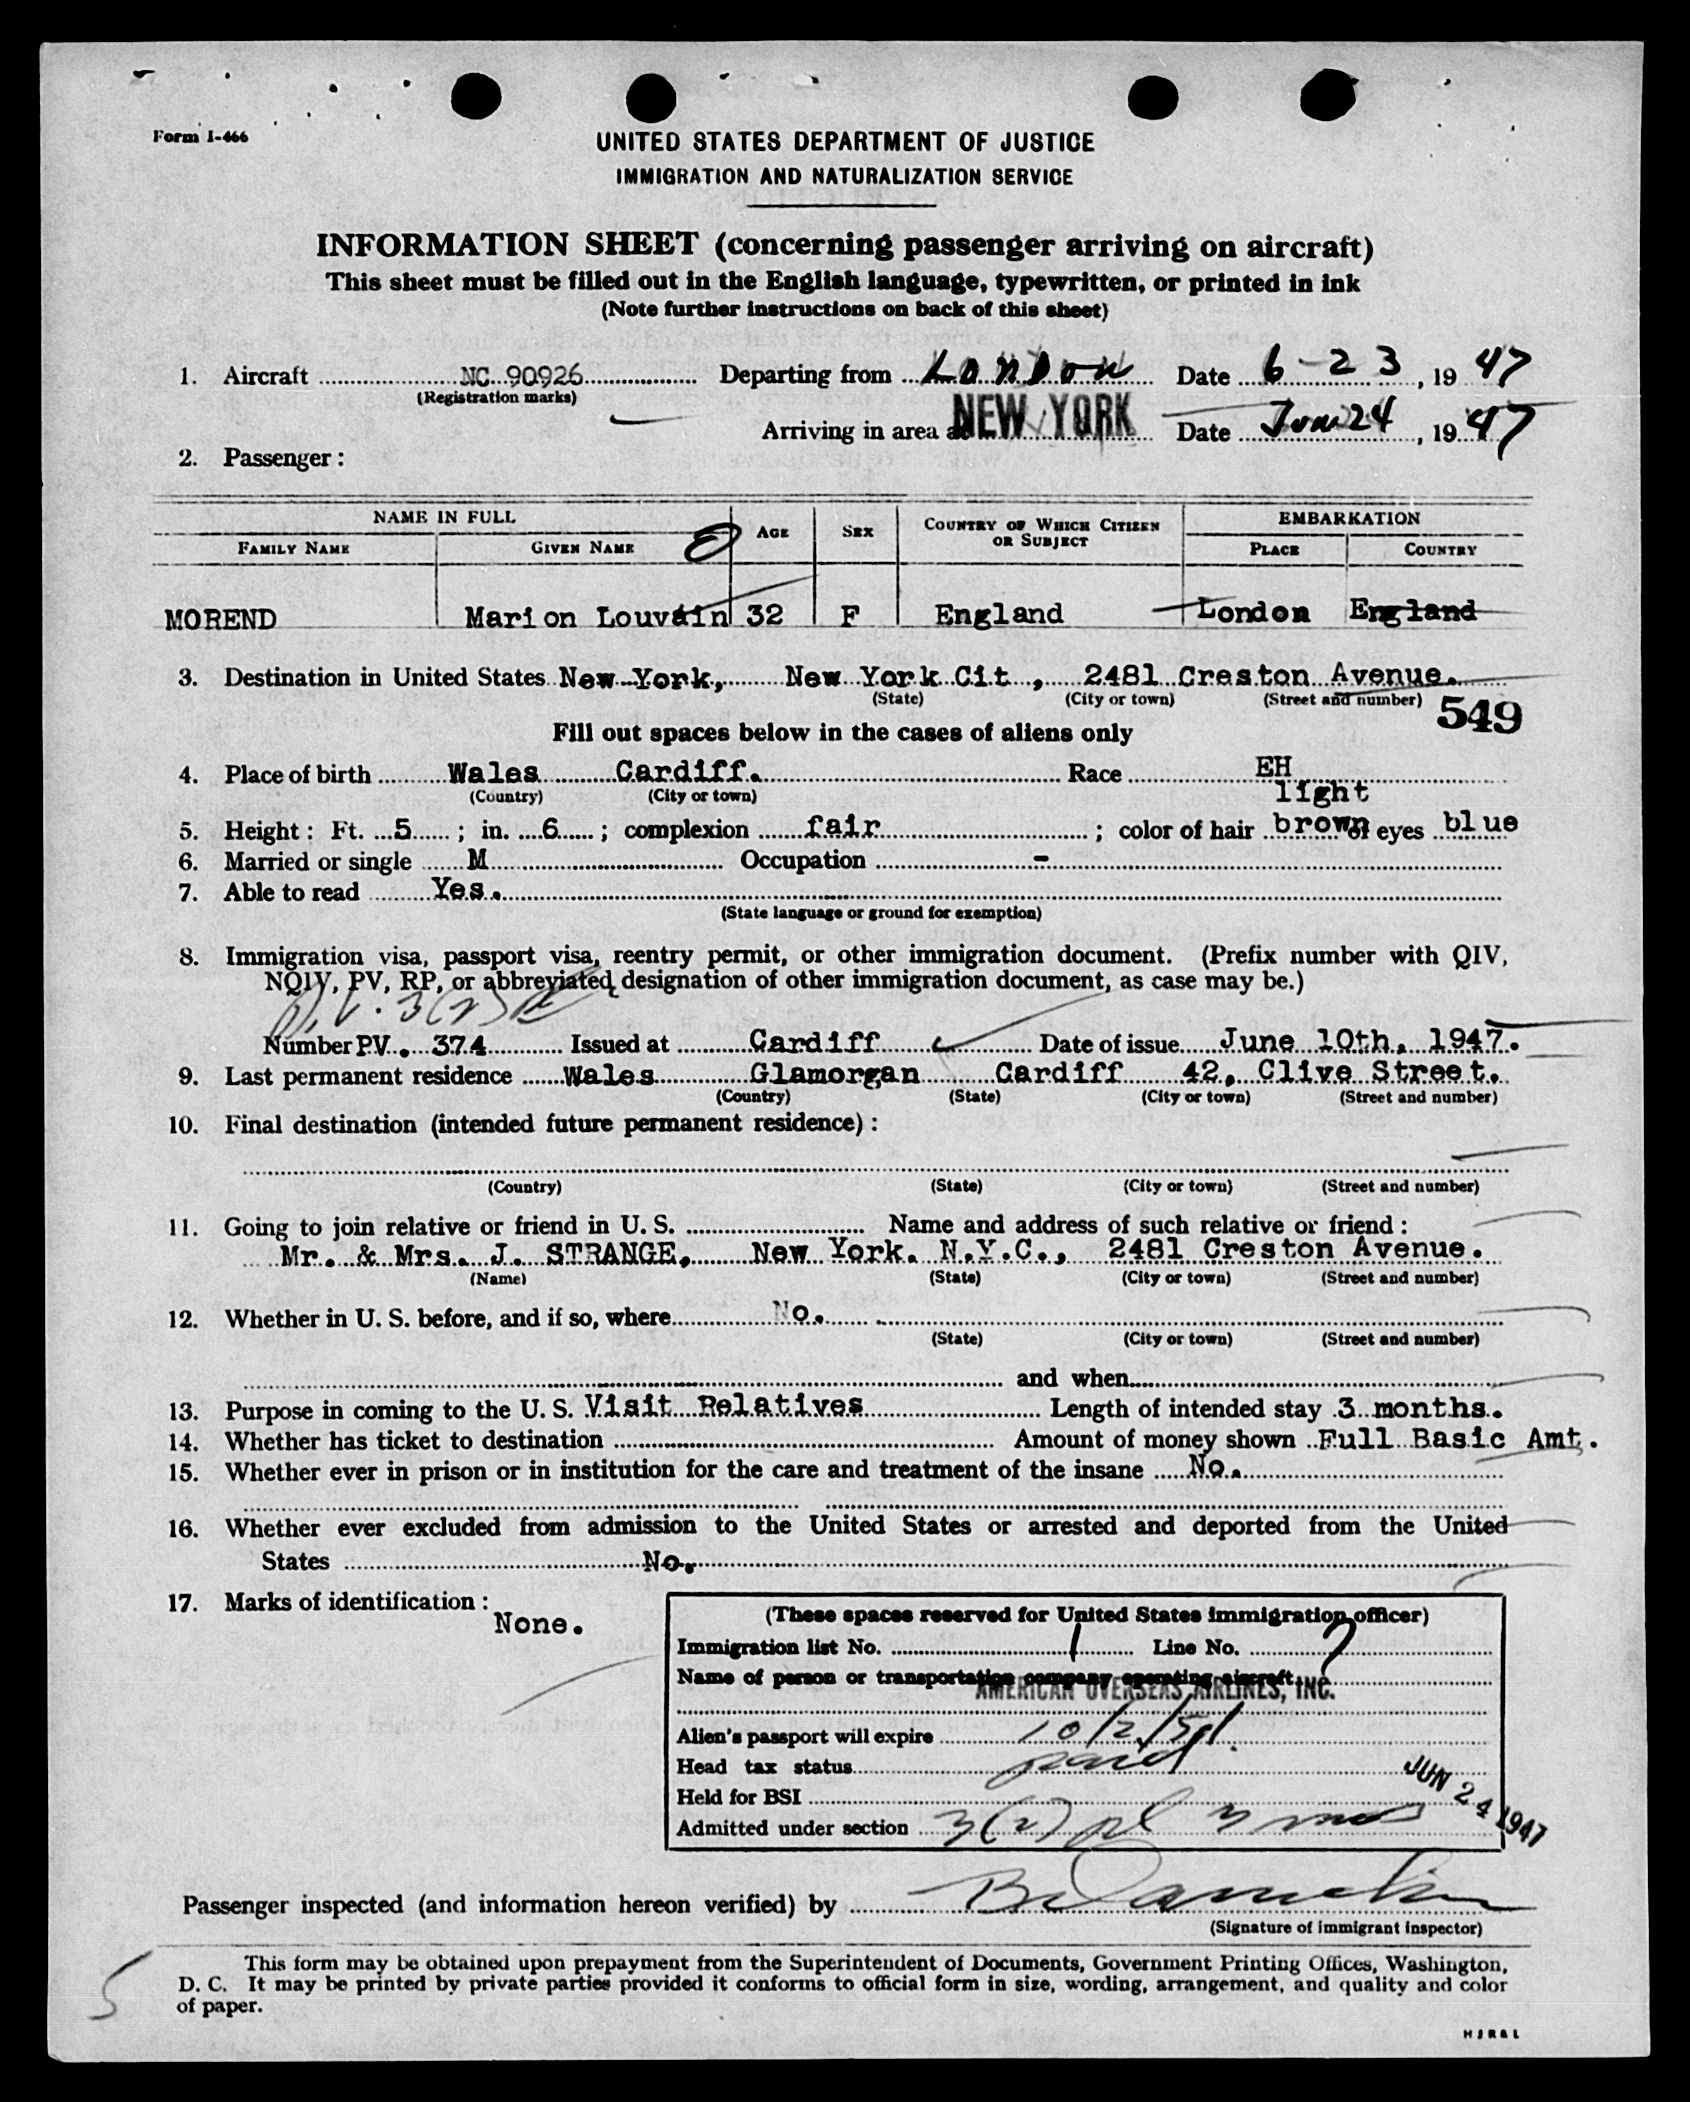 Form I-466
UNITED STATES DEPARTMENT OF JUSTICE
IMMIGRATION AND NATURALIZATION SERVICE
INFORMATION SHEET (concerning passenger arriving on aircraft)
This sheet must be filled out in the English language, typewritten, or printed in ink
(Note further instructions on back of this sheet)
1. Aircraft NC 90926 Departing from London Date 6-23, 19 47
(Registration marks)
Arriving in area at NEW YORK Date Jun 24, 19 47
2. Passenger:
NAME IN FULL AGE SEX COUNTRY OF WHICH CITIZEN OR SUBJECT EMBARKATION
FAMILY NAME GIVEN NAME PLACE COUNTRY
MOREND Marion Louvain 32 F England London England
3. Destination in United States New York, New York Cit , 2481 Creston Avenue.
(State) (City or town) (Street and number)
549
Fill out spaces below in the cases of aliens only
4. Place of birth Wales Cardiff. Race EH
(Country) (City or town)
light
5. Height: Ft. 5 ; in. 6 ; complexion fair ; color of hair brown of eyes blue
6. Married or single M Occupation -
7. Able to read Yes.
(State language or ground for exemption)
8. Immigration visa, passport visa, reentry permit, or other immigration document. (Prefix number with QIV,
NQIV, PV, RP, or abbreviated designation of other immigration document, as case may be.)
P.V. 3(2)
Number PV. 374 Issued at Cardiff Date of issue June 10th, 1947.
9. Last permanent residence Wales Glamorgan Cardiff 42, Clive Street.
(Country) (State) (City or town) (Street and number)
10. Final destination (intended future permanent residence):
(Country) (State) (City or town) (Street and number)
11. Going to join relative or friend in U. S. Name and address of such relative or friend:
Mr. & Mrs. J. STRANGE, New York. N.Y.C., 2481 Creston Avenue.
(Name) (State) (City or town) (Street and number)
12. Whether in U. S. before, and if so, where No.
(State) (City or town) (Street and number)
and when
13. Purpose in coming to the U. S. Visit Relatives Length of intended stay 3 months.
14. Whether has ticket to destination Amount of money shown Full Basic Amt.
15. Whether ever in prison or in institution for the care and treatment of the insane No.
16. Whether ever excluded from admission to the United States or arrested and deported from the United
States No.
17. Marks of identification:
None.
(These spaces reserved for United States immigration officer)
Immigration list No. 1 Line No. 7
Name of person or transportation company operating aircraft
AMERICAN OVERSEAS AIRLINES, INC.
Alien's passport will expire 10/2/51.
Head tax status paid
JUN 24 1947
Held for BSI
Admitted under section 3(2) 3 mos
Passenger inspected (and information hereon verified) by
(Signature of immigrant inspector)
This form may be obtained upon prepayment from the Superintendent of Documents, Government Printing Offices, Washington,
D. C. It may be printed by private parties provided it conforms to official form in size, wording, arrangement, and quality and color
of paper.
HJR&L
5